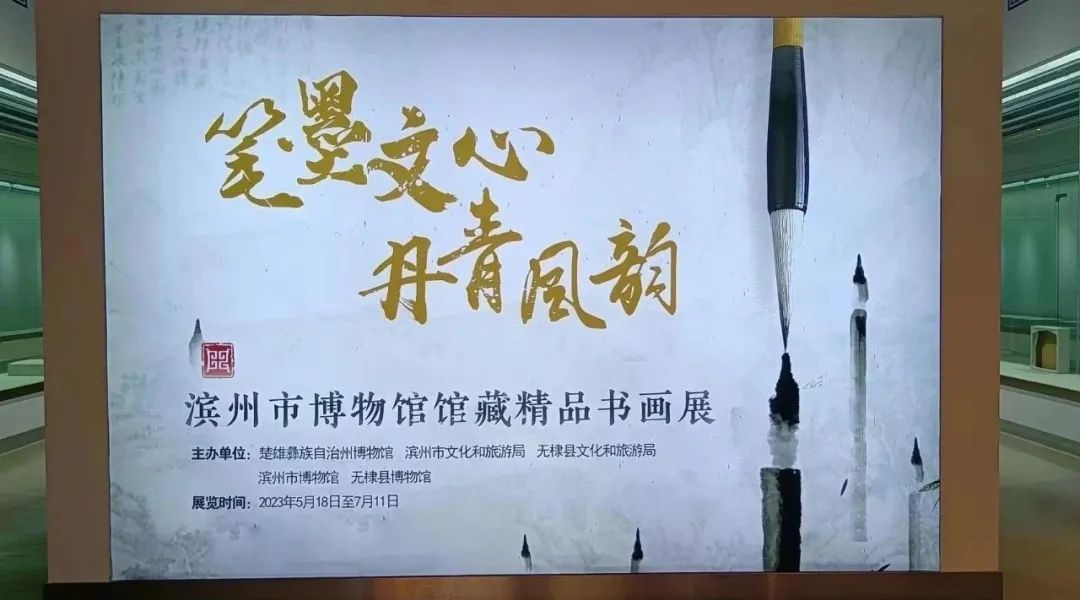 笔墨文心
丹青风韵
滨州市博物馆馆藏精品书画展
主办单位：楚雄彝族自治州博物馆 滨州市文化和旅游局 无棣县文化和旅游局
滨州市博物馆 无棣县博物馆
展览时间：2023年5月18日至7月11日